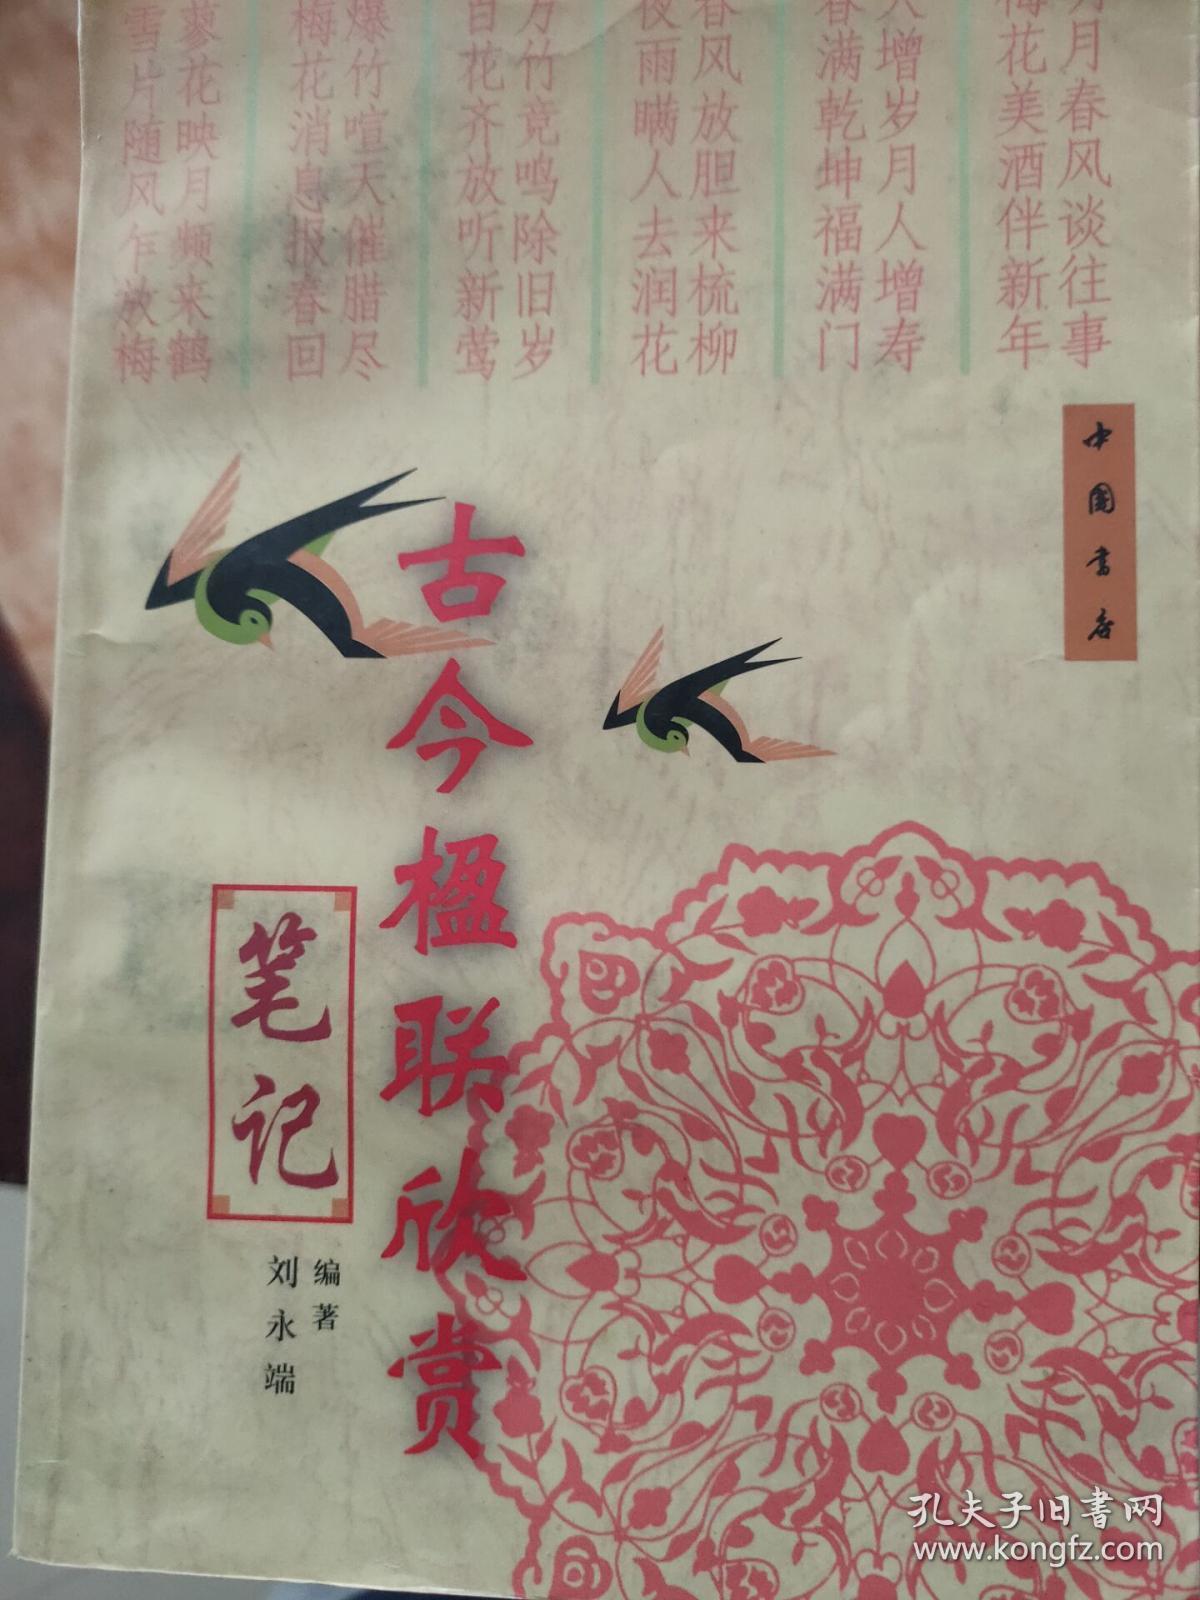 月春风谈往事
花美酒伴新年
增岁月人增寿
满乾坤福满门
春风放胆来梳柳
夜雨瞒人去润花
万竹竞鸣除旧岁
百花齐放听新莺
爆竹喧天催腊尽
梅花消息报春回
蓼花映月频来鹤
雪片随风乍放梅
中国书店
古今楹联欣赏
笔记
编著
刘永端
孔夫子旧书网
www.kongfz.com